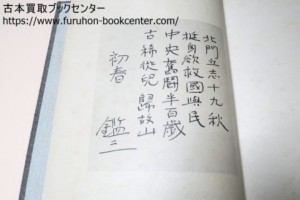 古本買取ブックセンター
https://www.furuhon-bookcenter.com/
北門立志十九秋
挺身欲救國與民
中央奮闘半百歳
古稀從兒歸故山
初春 鑑二